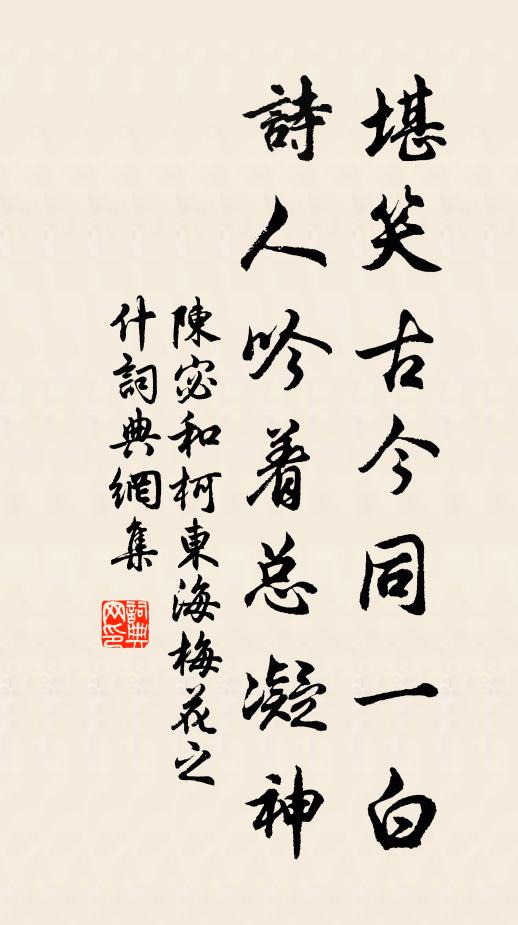 堪笑古今同一白
詩人吟着总凝神
陳宓和柯東海梅花之
什詞典網集
詞典网印